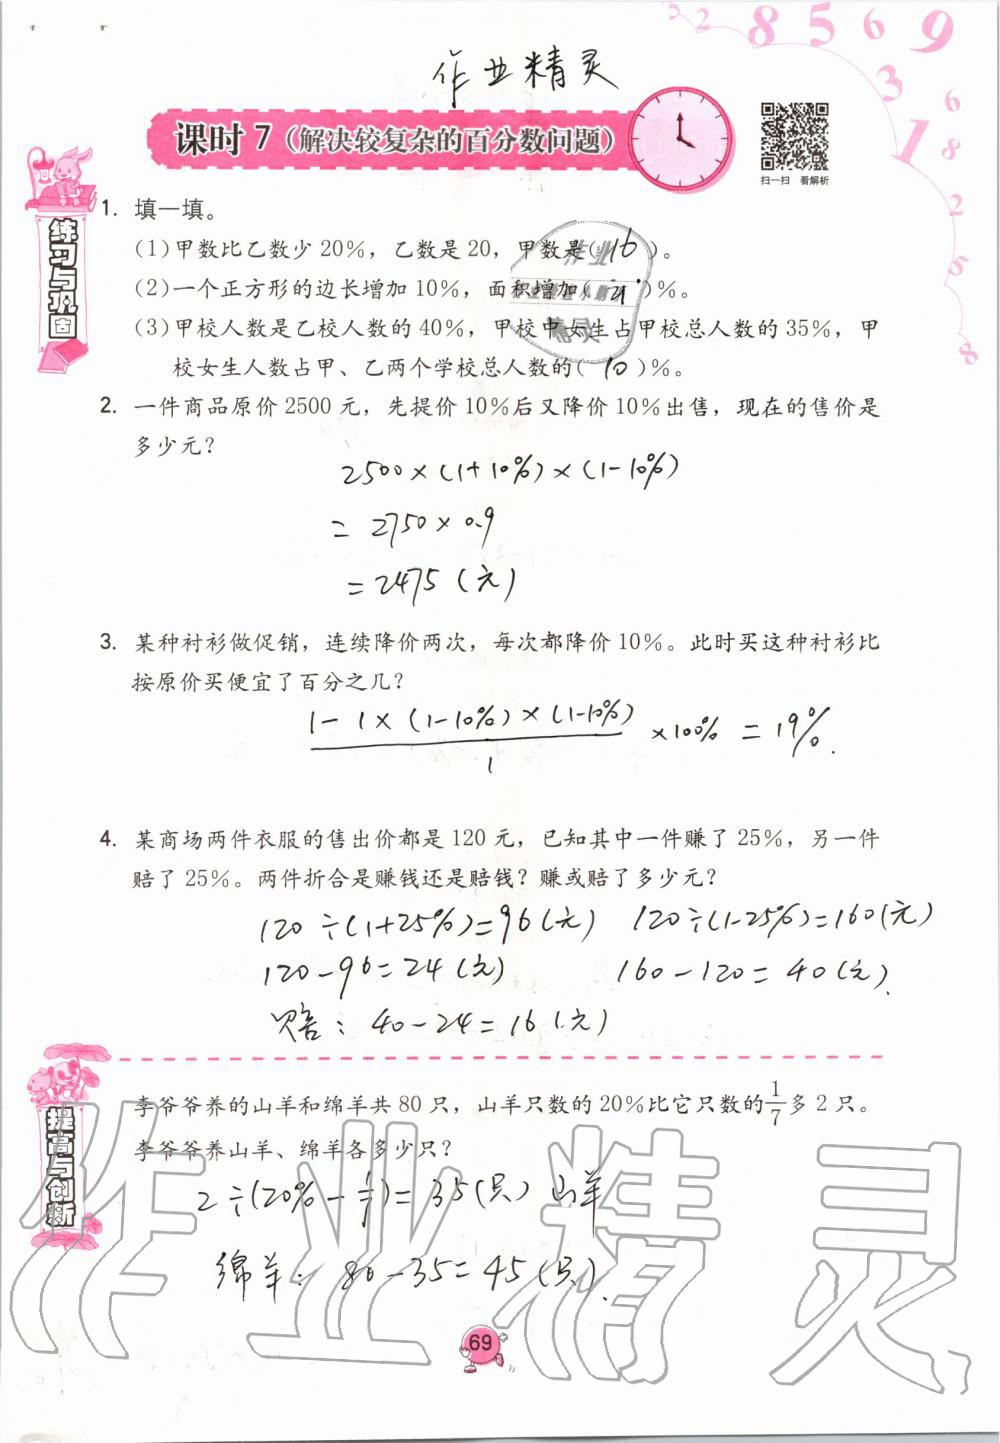 3 2 8 5 6 9
作业精灵
3
6
1 8
课时 7（解决较复杂的百分数问题）
扫一扫 看解析
2
5
8
练习与巩固
1. 填一填。
(1)甲数比乙数少 20%，乙数是 20，甲数是( 16 )。
(2)一个正方形的边长增加 10%，面积增加( 21 )%。
(3)甲校人数是乙校人数的 40%，甲校中女生占甲校总人数的 35%，甲
校女生人数占甲、乙两个学校总人数的( 10 )%。
2. 一件商品原价 2500 元，先提价 10%后又降价 10%出售，现在的售价是
多少元？
2500×(1+10%)×(1-10%)
= 2750×0.9
=2475(元)
3. 某种衬衫做促销，连续降价两次，每次都降价 10%。此时买这种衬衫比
按原价买便宜了百分之几？
1-1×(1-10%)×(1-10%)/1 ×100% = 19%.
4. 某商场两件衣服的售出价都是 120 元，已知其中一件赚了 25%，另一件
赔了 25%。两件折合是赚钱还是赔钱？赚或赔了多少元？
120÷(1+25%)=96(元) 120÷(1-25%)=160(元)
120-96=24(元) 160-120=40(元).
赔：40-24=16(元)
提高与创新
李爷爷养的山羊和绵羊共 80 只，山羊只数的 20%比它只数的1/7多 2 只。
李爷爷养山羊、绵羊各多少只？
2÷(20%-1/7)=35(只) 山羊
绵羊：80-35=45(只).
作业精灵
69